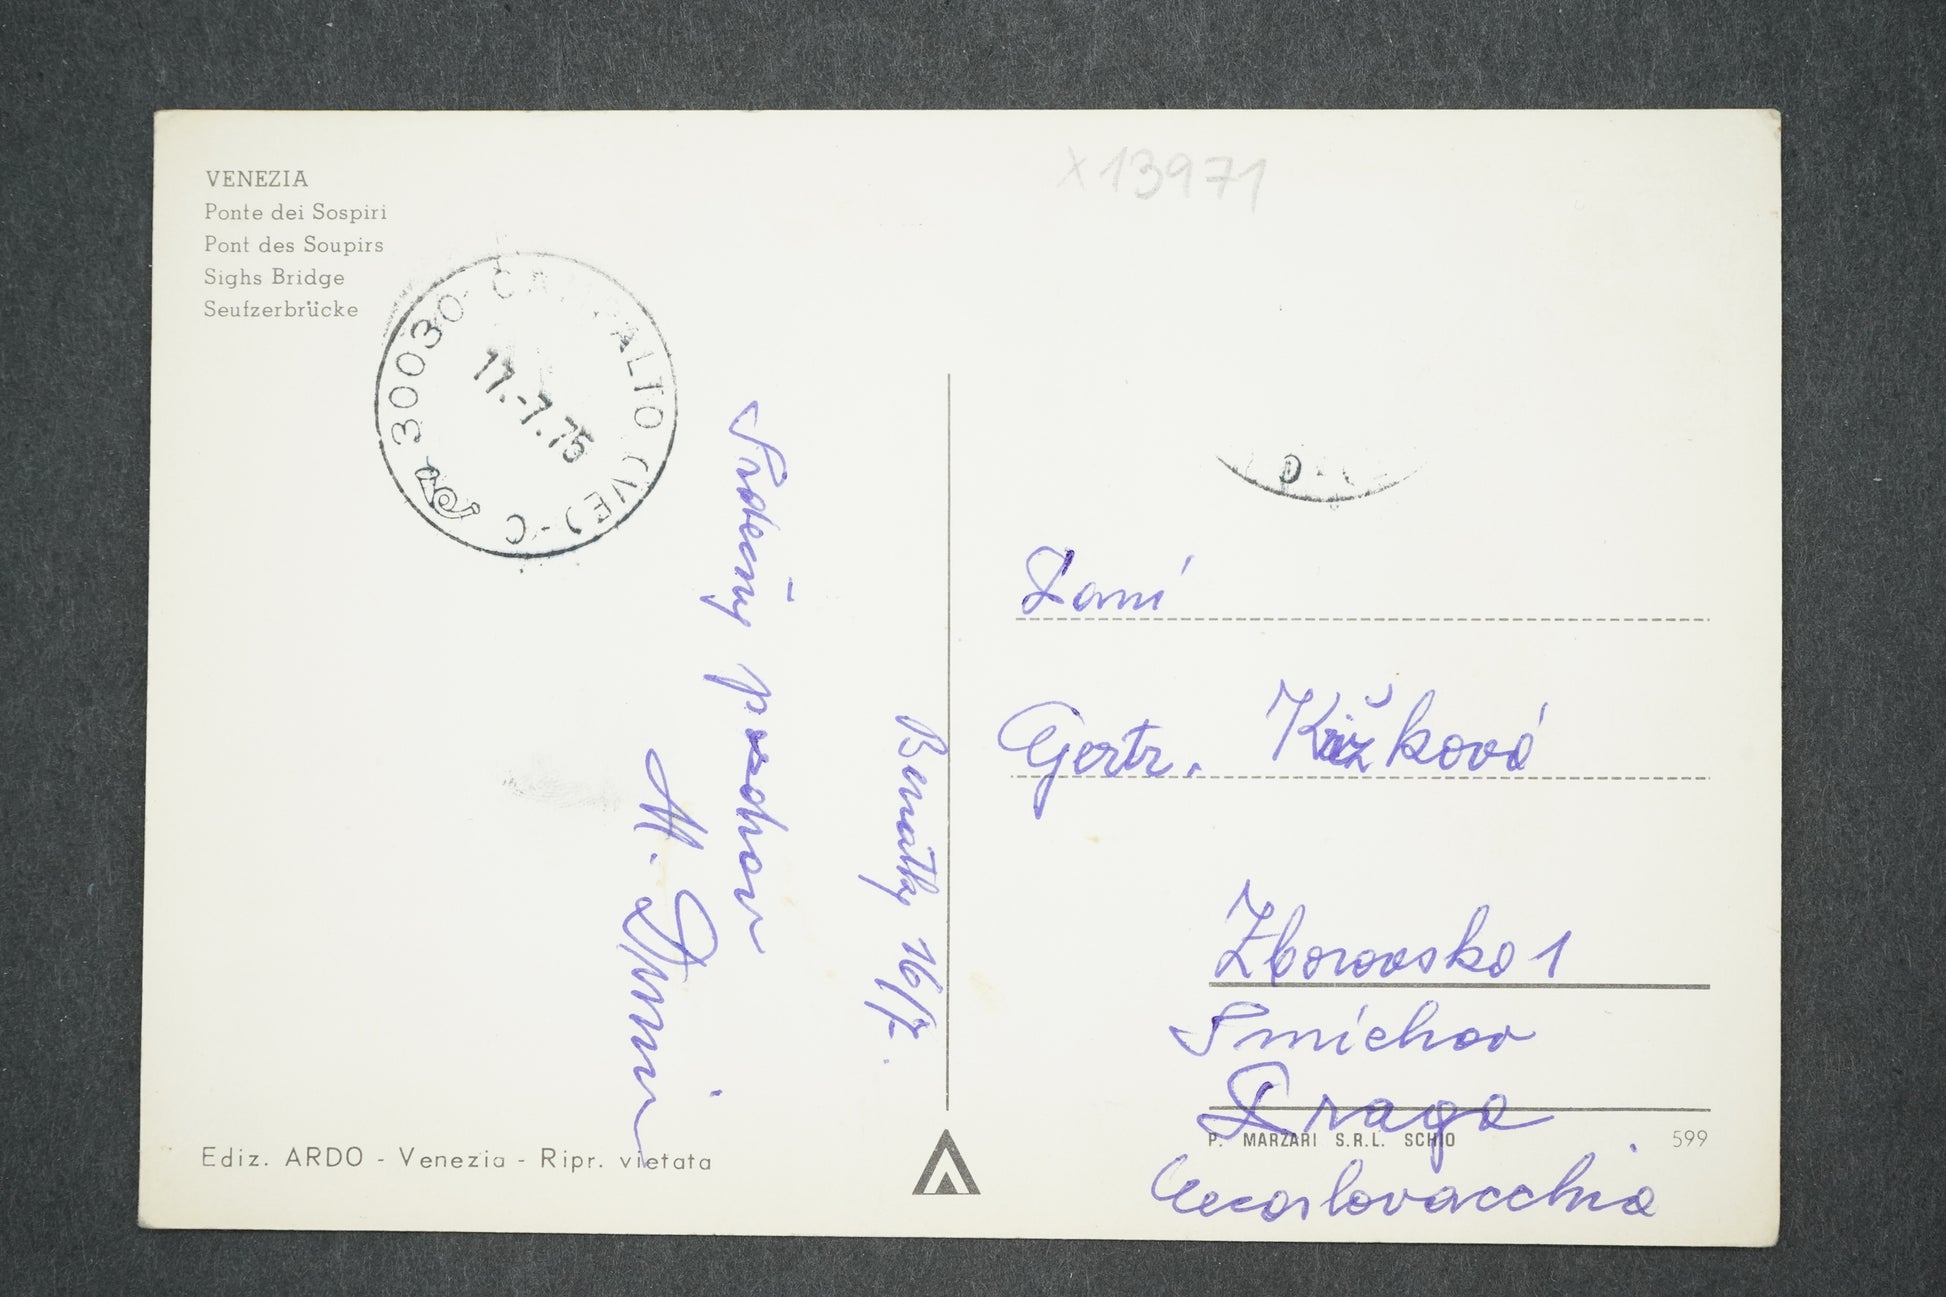 VENEZIA
Ponte dei Sospiri
Pont des Soupirs
Sighs Bridge
Seufzerbrücke
30030 CAMPALTO (VE) - C
17.-7.75
x 13971
Srdečný pozdrav
M.
Benátky 16/7.
Paní
Gertr. Křížková
Zborovská 1
Smíchov
Praga
Cecoslovacchia
Ediz. ARDO - Venezia - Ripr. vietata
P. MARZARI S.R.L. SCHIO
599